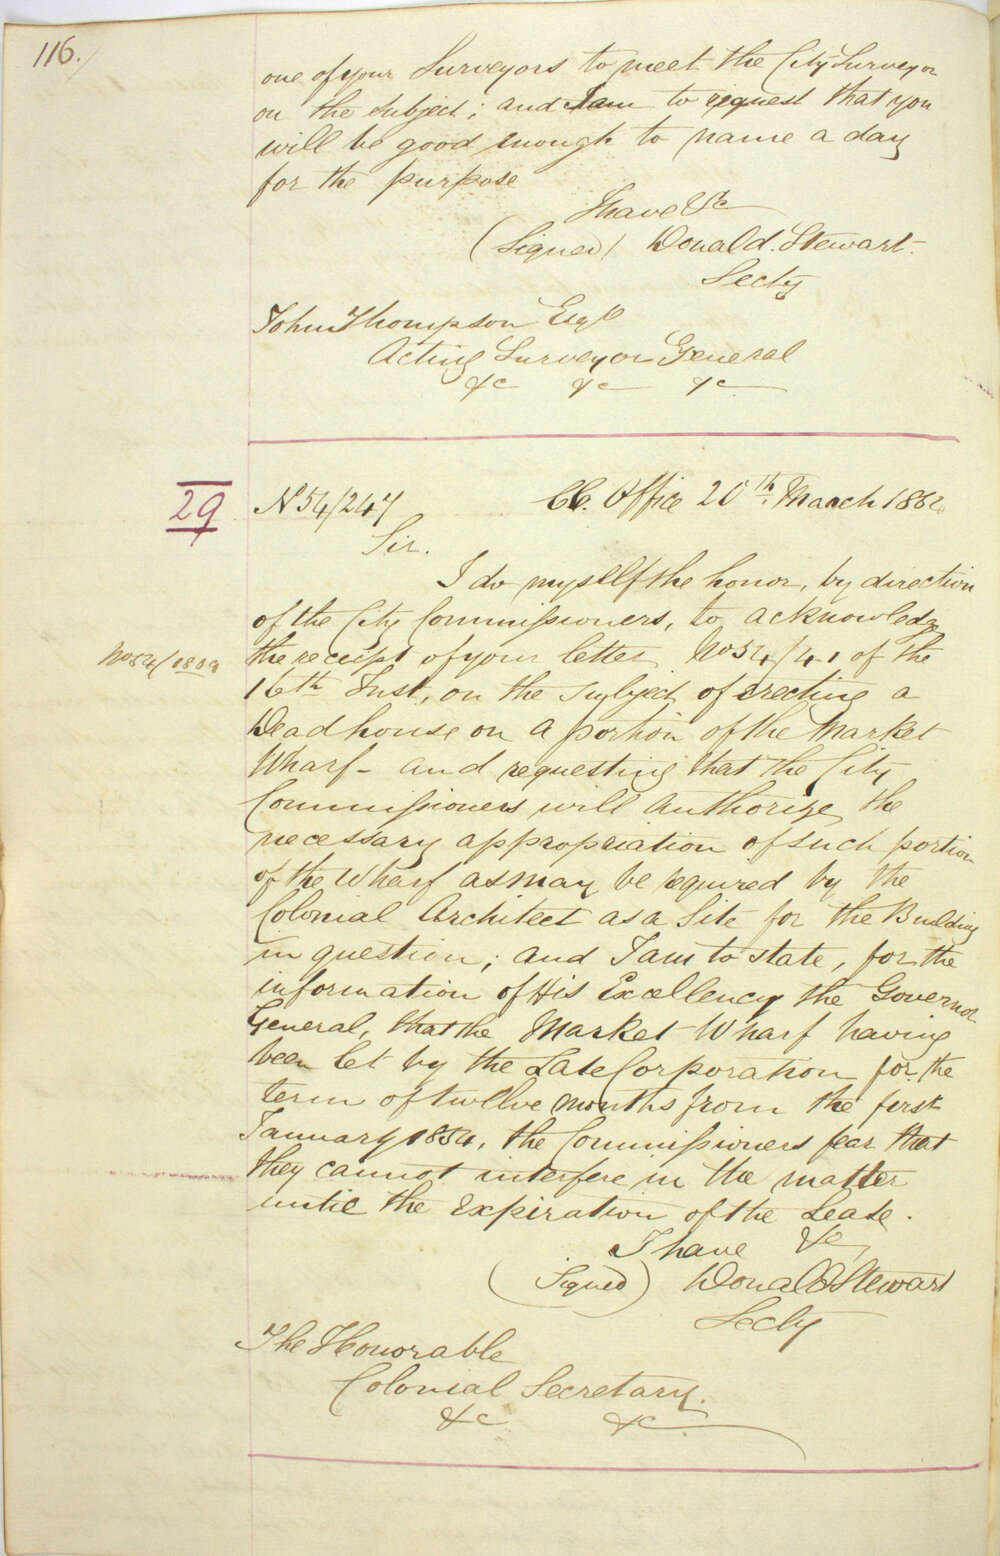 116.
one of your Surveyors to meet the City Surveyor
on the subject; and I am to request that you
will be good enough to name a day
for the purpose
I have &c
(Signed) Donald Stewart
Secty
John Thompson Esqre
Acting Surveyor General
&c &c &c
29
No 54/247 CC. Office 20th March 1854
Sir.
I do myself the honor, by direction
of the City Commissioners, to acknowledge
No 54/1889
the receipt of your letter No 54/41 of the
16th Inst, on the subject of erecting a
Dead house on a portion of the Market
Wharf - and requesting that the City
Commissioners will authorize the
necessary appropriation of such portion
of the Wharf as may be required by the
Colonial Architect as a Site for the Building
in question; and I am to state, for the
information of His Excellency the Governor
General, that the Market Wharf having
been let by the Late Corporation for the
term of twelve months from the first
January 1854, the Commissioners fear that
they cannot interfere in the matter
until the Expiration of the Lease.
I have &c
(Signed) Donald Stewart
Secty
The Honorable
Colonial Secretary.
&c &c